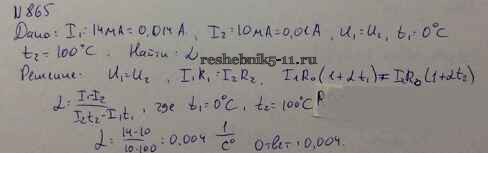 N 865
Дано: I₁=14мА=0,014А, I₂=10мА=0,01А, U₁=U₂, t₁=0°C
t₂=100°C. Найти: α
reshebnik5-11.ru
Решение: U₁=U₂, I₁R₁=I₂R₂, I₁R₀(1+αt₁)=I₂R₀(1+αt₂)
α=(I₁-I₂)/(I₂t₂-I₁t₁), где t₁=0°C, t₂=100°C
α=(14-10)/(10·100)=0,004 1/C° Ответ: 0,004.